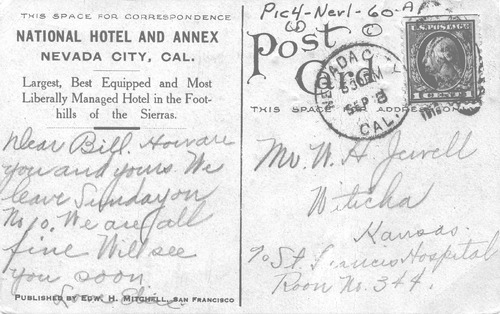 THIS SPACE FOR CORRESPONDENCE
NATIONAL HOTEL AND ANNEX
NEVADA CITY, CAL.
Largest, Best Equipped and Most
Liberally Managed Hotel in the Foot-
hills of the Sierras.
Dear Bill. How are
you and yours. We
leave Sunday on
No 10. We are all
fine Will see
you soon
PUBLISHED BY EDW. H. MITCHELL, SAN FRANCISCO
Pic4-Nev1-60-A
Post Card
THIS SPACE FOR ADDRESS
NEVADA C
530 PM
SEP 8
CAL.
U.S. POSTAGE
Mr. W. H. Jewell
Witicha
Kansas.
% St. Francis Hospital
Room No. 344.